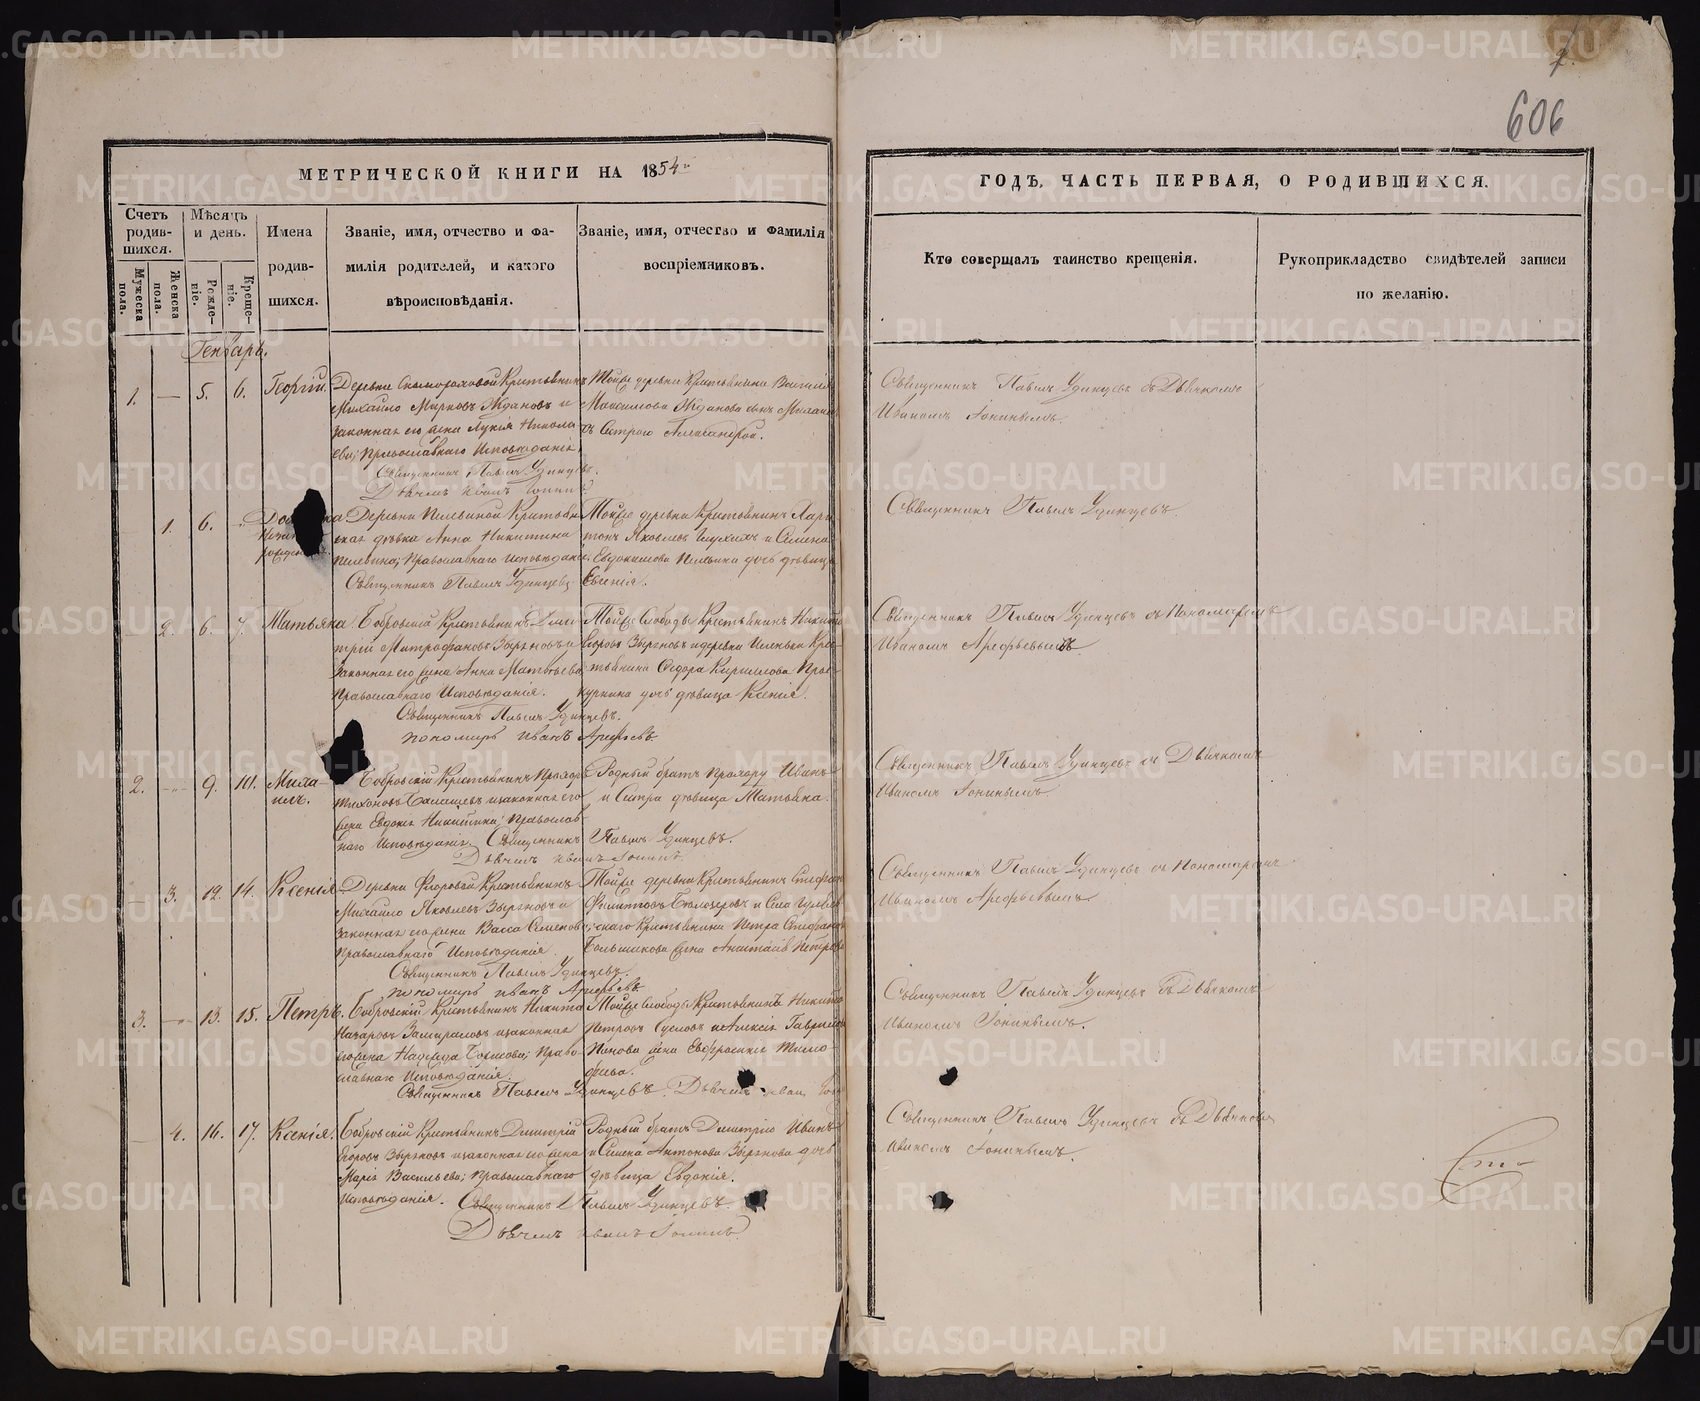 606
МЕТРИЧЕСКОЙ КНИГИ НА 1854й
ГОДЪ, ЧАСТЬ ПЕРВАЯ, О РОДИВШИХСЯ.
Счетъ родив-шихся.
Мѣсяцъ и день.
Имена родив-шихся.
Званіе, имя, отчество и фа-
милія родителей, и какого
вѣроисповѣданія.
Званіе, имя, отчество и фамилія
воспріемниковъ.
Кто совершалъ таинство крещенія.
Рукоприкладство свидѣтелей записи
по желанію.
Мужеска пола.
Женска пола.
Рожде-ніе.
Креще-ніе.
Генварь.
1. — 5. 6. Георгій.
Деревни Скомороховой Крестьянинъ
Михайло Марковъ Ждановъ и
законная его жена Лукія Никола-
ева; Православнаго Исповѣданія.
Священникъ Павелъ Удинцевъ.
Дьячекъ Иванъ Іонинъ
Той же деревни Крестьянина Василія
Максимова Жданова сынъ Михаилъ
съ Сестрою Александрой.
Священникъ Павелъ Удинцевъ съ Дьячкомъ
Иваномъ Іонинымъ.
1. 6.
Деревни
Анна Никитина
Православнаго Исповѣданія.
Священникъ Павелъ Удинцевъ
Той же деревни Крестьянинъ Хари-
тонъ Яковлевъ и Семена
Евдокимова дочь дѣвица
Евгенія.
Священникъ Павелъ Удинцевъ.
2. 6. 7. Татьяна.
Бобровскій Крестьянинъ Дми-
трій Митрофановъ Зыряновъ и
законная его жена Анна Матвѣева
Православнаго Исповѣданія.
Священникъ Павелъ Удинцевъ.
пономарь Иванъ Арефьевъ
Той же Слободы Крестьянинъ Никита
Егоровъ Зыряновъ и деревни Крес-
тьянина Ѳедора Кирилова Прос-
курнина дочь дѣвица Ксенія.
Священникъ Павелъ Удинцевъ съ Пономаремъ
Иваномъ Арефьевымъ
2. — 9. 10. Миха-
илъ.
Бобровскій Крестьянинъ Прохоръ
Тихоновъ и законная его
жена Евдокія Никитина; Православ-
наго Исповѣданія. Священникъ Павелъ Удинцевъ.
Дьячекъ Иванъ Іонинъ.
Родный братъ Прохору Иванъ
и Сестра дѣвица Татьяна.
Священникъ Павелъ Удинцевъ съ Дьячкомъ
Иваномъ Іонинымъ.
— 3. 12. 14. Ксенія.
Деревни Крестьянинъ
Михайло Яковлевъ Зыряновъ и
законная его жена Васса Семенова;
Православнаго Исповѣданія.
Священникъ Павелъ Удинцевъ.
пономарь Иванъ Арефьевъ.
Той же деревни Крестьянинъ Стефанъ
Филипповъ и Села
скаго Крестьянина Петра Стефанова
Большакова жена Анастасія Петрова
Священникъ Павелъ Удинцевъ съ Пономаремъ
Иваномъ Арефьевымъ
3. — 13. 15. Петръ.
Бобровскій Крестьянинъ Никита
Назаровъ и законная
его жена Надежда Борисова; Право-
славнаго Исповѣданія.
Священникъ Павелъ Удинцевъ. Дьячекъ Иванъ
Той же Слободы Крестьянинъ Никита
Петровъ Сусловъ и Алексія Гаврилова
Панова жена Евфросинія Тимо-
феева.
Священникъ Павелъ Удинцевъ съ Дьячкомъ
Иваномъ Іонинымъ.
— 4. 16. 17. Ксенія.
Бобровскій Крестьянинъ Дмитрій
Егоровъ Зыряновъ и законная его жена
Марія Васильева; Православнаго
Исповѣданія. Священникъ Павелъ Удинцевъ.
Дьячекъ Иванъ Іонинъ.
Родный братъ Дмитрію Иванъ
и Семена Антонова Зырянова дочь
дѣвица Евдокія.
Священникъ Павелъ Удинцевъ съ Дьячкомъ
Иваномъ Іонинымъ.
METRIKI.GASO-URAL.RU